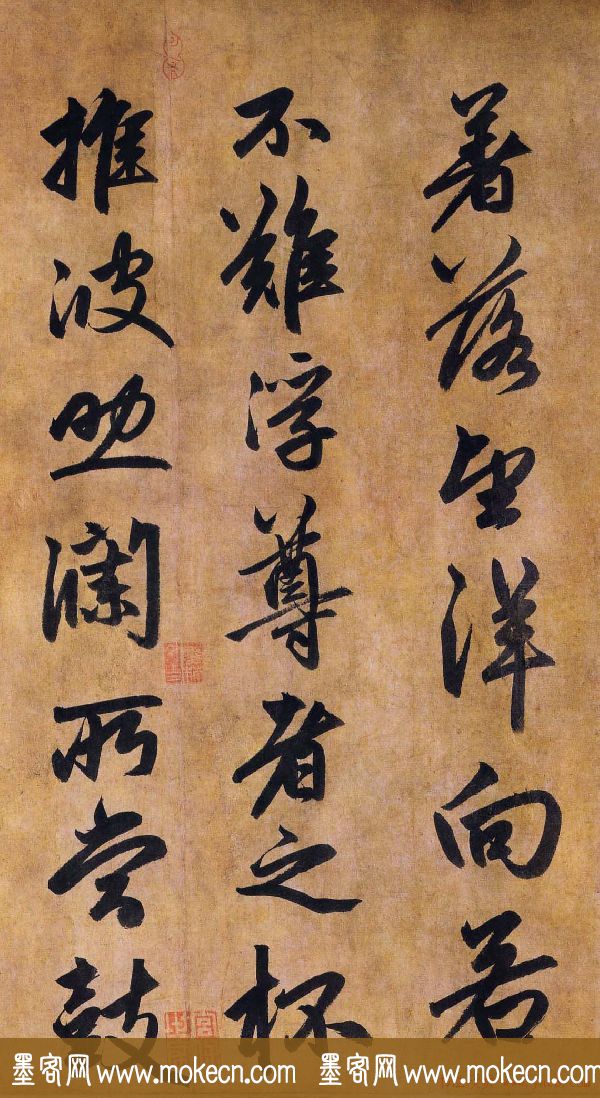 著落望洋向若
不難浮尊者之杯
推波助瀾所嘗鼓
墨客网 www.mokecn.com 墨客网 www.mokecn.com